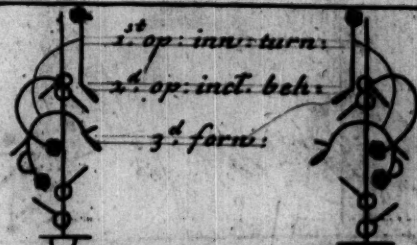 1.st op: inw: turn:
2.d op: incl. beh:
3.d forw: